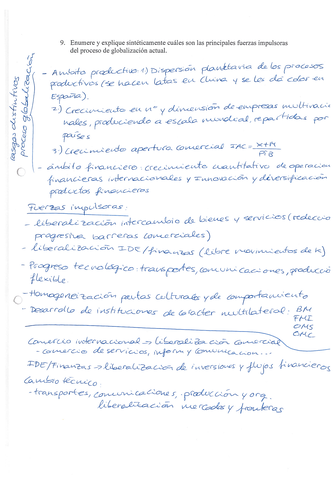 9. Enumere y explique sintéticamente cuáles son las principales fuerzas impulsoras
del proceso de globalización actual.
rasgos distintivos
proceso globalización
- Ámbito productivo: 1) Dispersión planetaria de los procesos
productivos (se hacen latas en China y se les da color en
España).
2) Crecimiento en nº y dimensión de empresas multinacio
nales, produciendo a escala mundial, repartidas por
países
3) Crecimiento apertura comercial IAC = X+M
PIB
- ámbito financiero: crecimiento cuantitativo de operacion
financieras internacionales y Innovación y diversificación
productos financieros
Fuerzas impulsoras:
- liberalización intercambio de bienes y servicios (reducció
progresiva barreras comerciales)
- liberalización IDE/finanzas (libre movimientos de K)
- Progreso tecnológico: transportes, comunicaciones, producció
flexible.
- Homogeneización pautas culturales y de comportamiento
- Desarrollo de instituciones de carácter multilateral: BM
FMI
OMS
OMC
Comercio internacional → liberalización comercial
- comercio de servicios, inform y comunicación...
IDE/Finanzas → liberalización de inversiones y flujos financieros
Cambio técnico:
- transportes, comunicaciones, producción y org.
liberalización mercados y fronteras